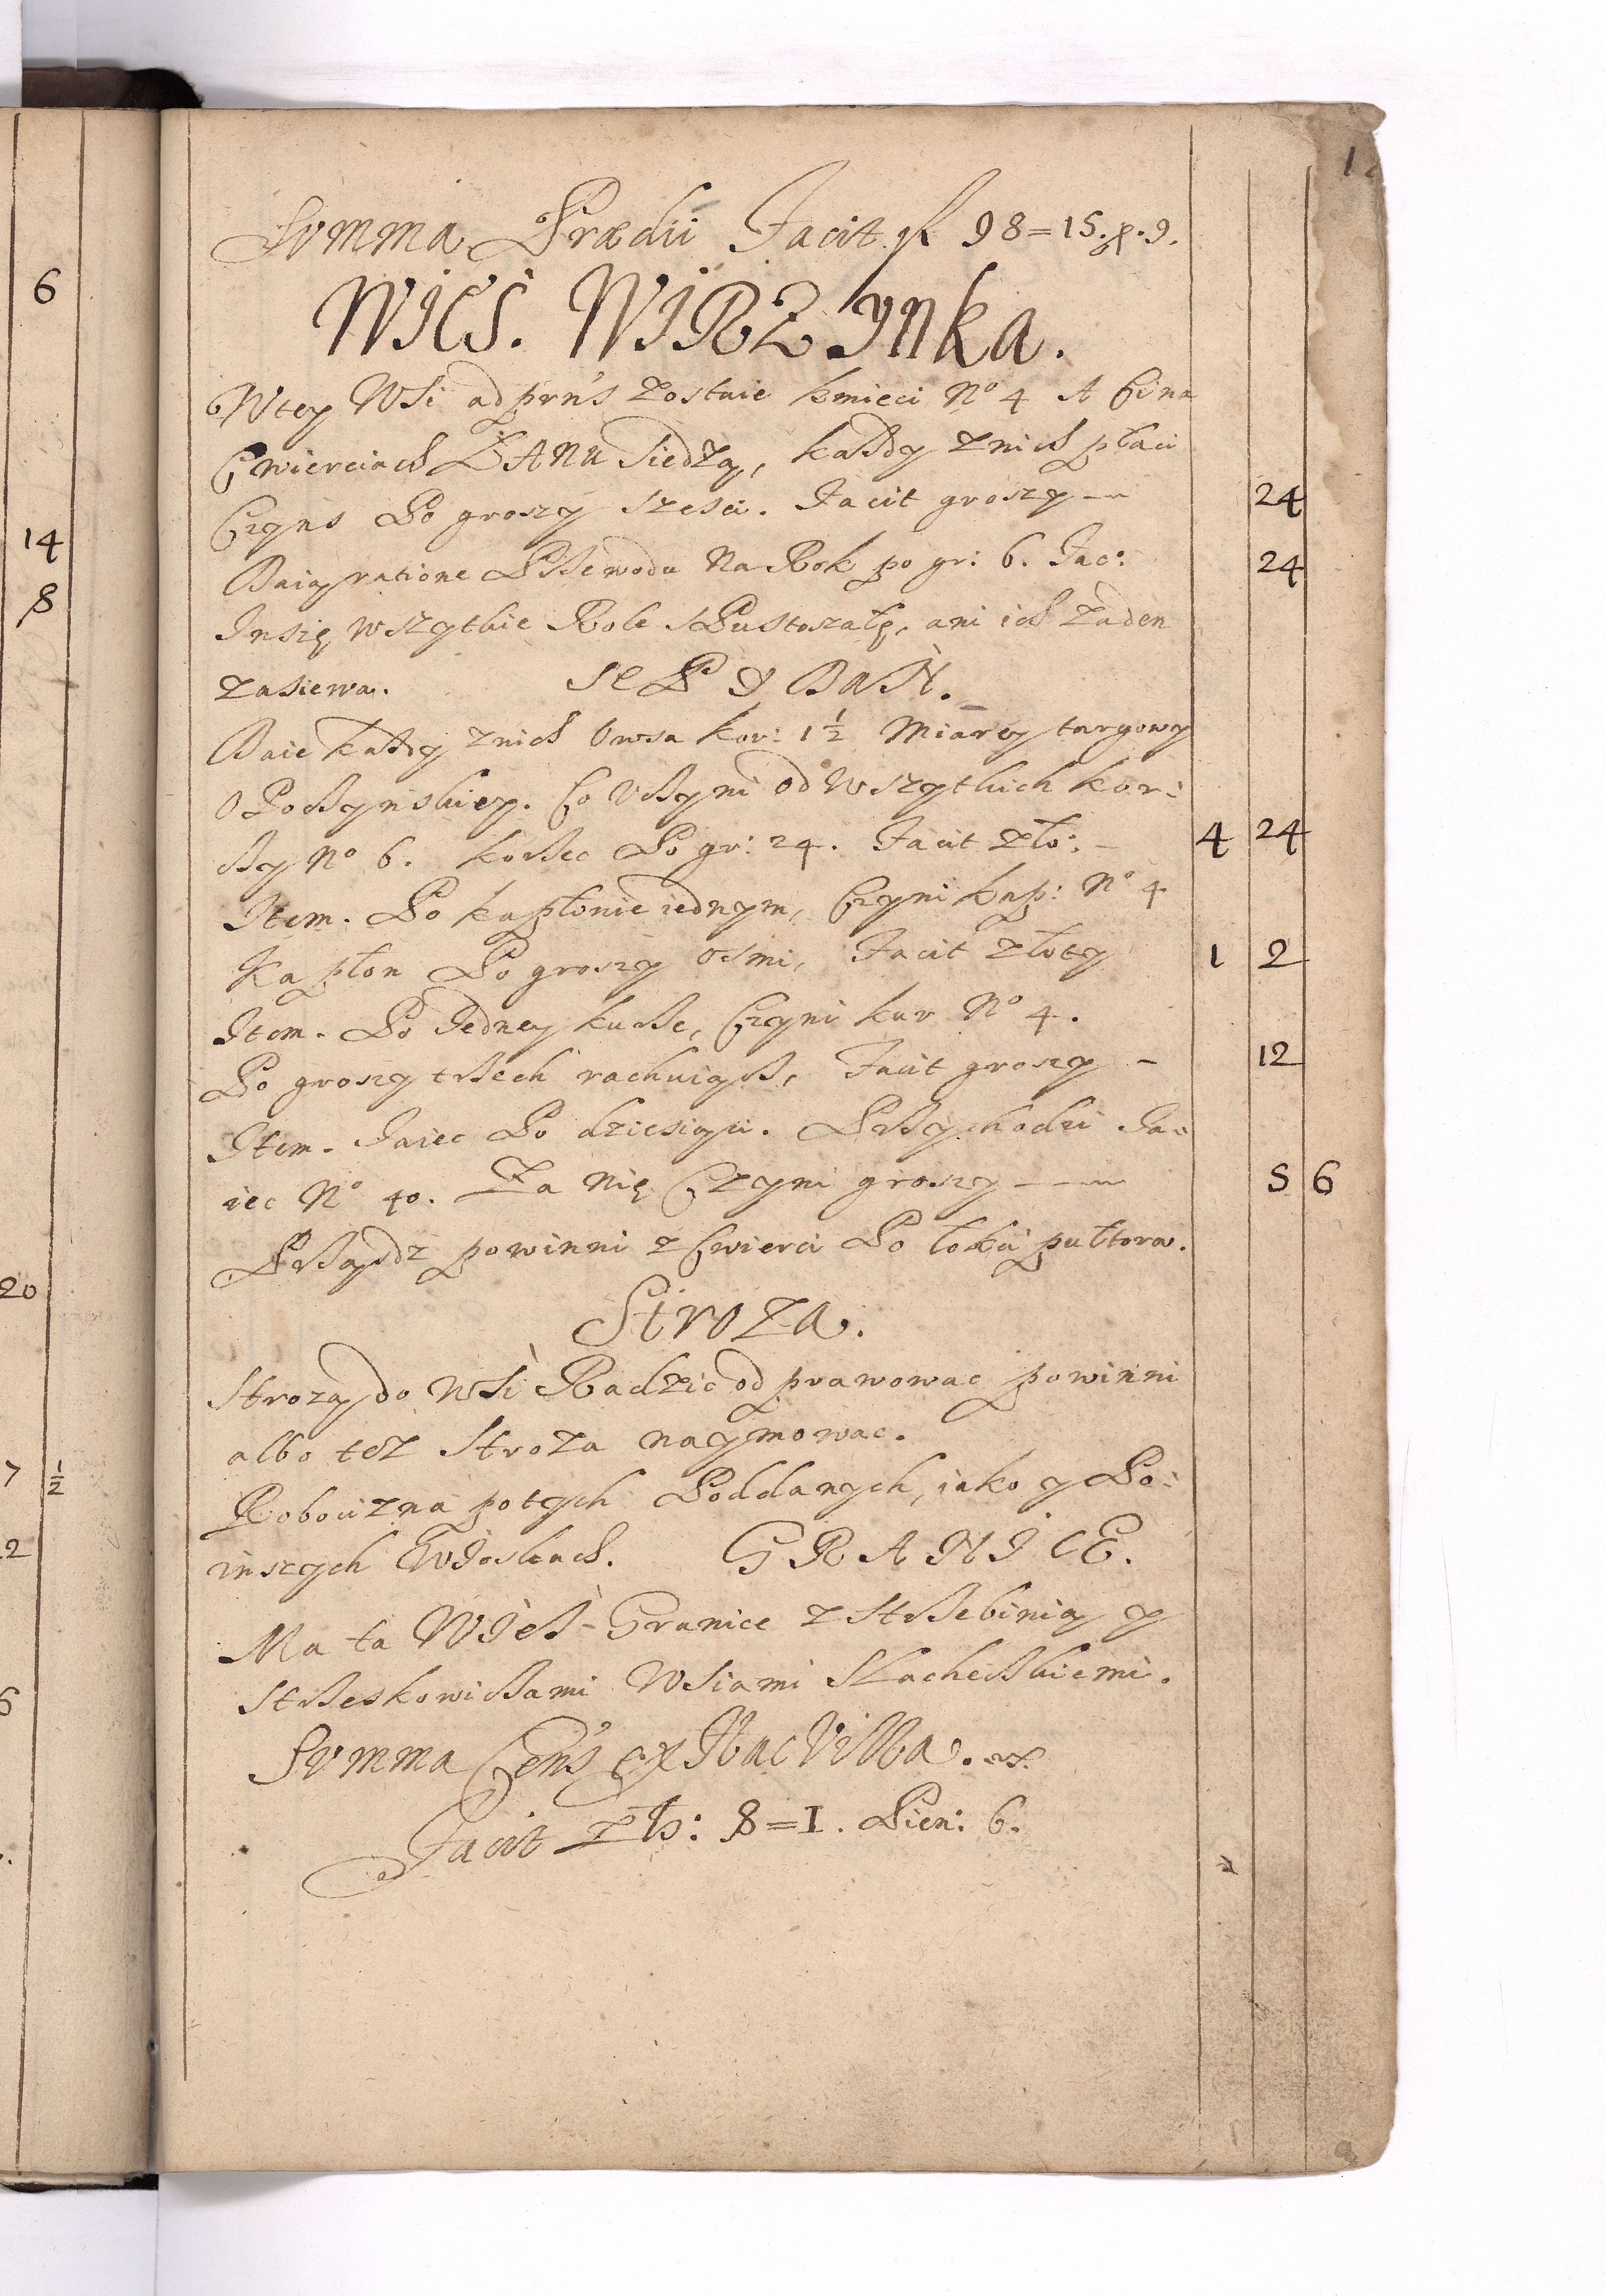 12
Summa Prædii Facit fl 98=15. ꝑ. 9.
WIEŚ. WIRZYNka.
W tey WSi ad prns zostaie kmieci No 4 A Ci na
Cwierciach ŁANU Siedzą, każdy z nich płaci
Czyns Po groszy szesci. Facit groszy — 24
Daią ratione PRzewodu Na Rok po gr: 6. Fac: 24
Inszę wszytkie Role sPustoszałę, ani ich żaden
zasiewa. SEP Y DaŃ.
Daie każdy z nich Owsa kor: 1½ Miarey targowy
OPoczynskiey. Co Uczyni od wszytkich kor:
cy No 6. korzec Po gr: 24. Facit zło: – 4 24
Item. Po kapłonie iednym, Czyni kap: No 4
Kapłon Po groszy osmi, Facit złoty 1 2
Item. Po Iedney kurze, Czyni kur No 4.
Po groszy trzech rachuiąc, Facit groszy – 12
Item. Iaiec Po dziesiąci. PRzychodzi Ia:
iec No 40. Za nię Czyni groszy — 5 6
PRządz powinni z Cwierci Po łokci pułtora.
Stroza.
Strozą do WSi Radzic odprawowac powinni
albo tesz Stroza naymowac.
Robocizna po tych Poddanych, iako y Po:
inszych Wioskach. GRANICE.
Ma ta WIeś Granice z Strzebinią y
Strzeskowicami WSiami Slacheckiemi.
Summa Cens ex Hac Villa.
Facit Zło: 8=I. Pien: 6.
6
14
8
20
7 ½
2
6